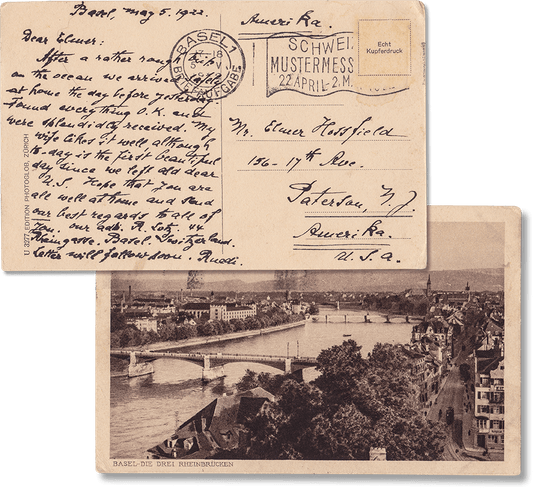 Basel, May 5, 1922.
Dear Elmer:
After a rather rough trip
on the ocean we arrived safely
at home the day before yesterday.
Found everything O.K. and
were splendidly received. My
wife likes it well although
to-day is the first beautiful
day since we left old dear
U.S. Hope that you are
all well at home and send
our best regards to all of
you. our adr. R. Lotz, 44
Basel, Switzerland.
Letter will follow soon. Ruedi.
Amerika.
BASEL 1
17-18
5. V.
BRIEFAUFGABE
SCHWEI
MUSTERMESS
22 APRIL-2.M
Echt
Kupferdruck
Mr. Elmer Hossfield
156 - 17th Ave.
Paterson, N.J.
Amerika
U.S.a.
EDITION PHOTOGLOB, ZÜRICH
BASEL-DIE DREI RHEINBRÜCKEN